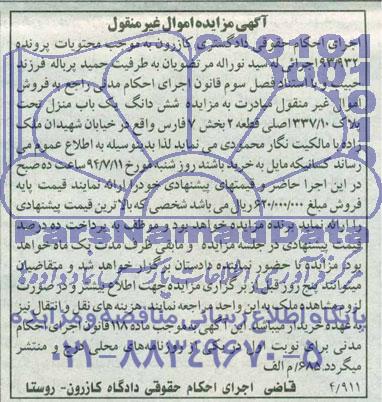 آگهی مزایده اموال غیر منقول
اجرای احکام حقوقی دادگستری کازرون به موجب محتویات پرونده
۹۳/۹۳۲ اجرائی له سید نوراله مرتضویان به طرفیت حمید پرباله فرزند
حبیب و با استناد فصل سوم قانون اجرای احکام مدنی راجع به فروش
اموال غیر منقول مبادرت به مزایده شش دانگ یک باب منزل تحت
پلاک ۳۳۷/۱۰ اصلی قطعه ۲ بخش ۷ فارس واقع در خیابان شهیدان ملک
زاده با مالکیت نگار محمودی می نماید لذا بدینوسیله به اطلاع عموم می
رساند کسانیکه مایل به خرید باشند روز شنبه مورخ ۹۴/۷/۱۱ ساعت ده صبح
در این اجرا حاضر و قیمتهای پیشنهادی خود را ارائه نمایند قیمت پایه
فروش مبلغ ۶۲۰/۰۰۰/۰۰۰ ریال می باشد شخصی که بالاترین قیمت پیشنهادی
را ارائه نماید برنده مزایده خواهد بود و موظف به پرداخت ده درصد
قیمت پیشنهادی در جلسه مزایده و مابقی ظرف مدت یک ماه خواهد
بود مزایده با حضور نماینده دادستان برگزار خواهد شد و متقاضیان
میتوانند پنج روز قبل از برگزاری مزایده جهت اطلاع بیشتر و در صورت
لزوم مشاهده ملک به این واحد مراجعه نمایند، هزینه های نقل و انتقال نیز
به عهده خریدار میباشد این آگهی به موجب ماده ۱۱۸ قانون اجرای احکام
مدنی برای نوبت اول در یکی از روزنامه های محلی طرح و منتشر
میگردد. ۶۸۵/م الف
۴/۹۱۱ قاضی اجرای احکام حقوقی دادگاه کازرون- روستا
ParsNamadData
پایگاه اطلاع رسانی مناقصه و مزایده
۰۲۱-۸۸۳۴۹۶۷۰-۵